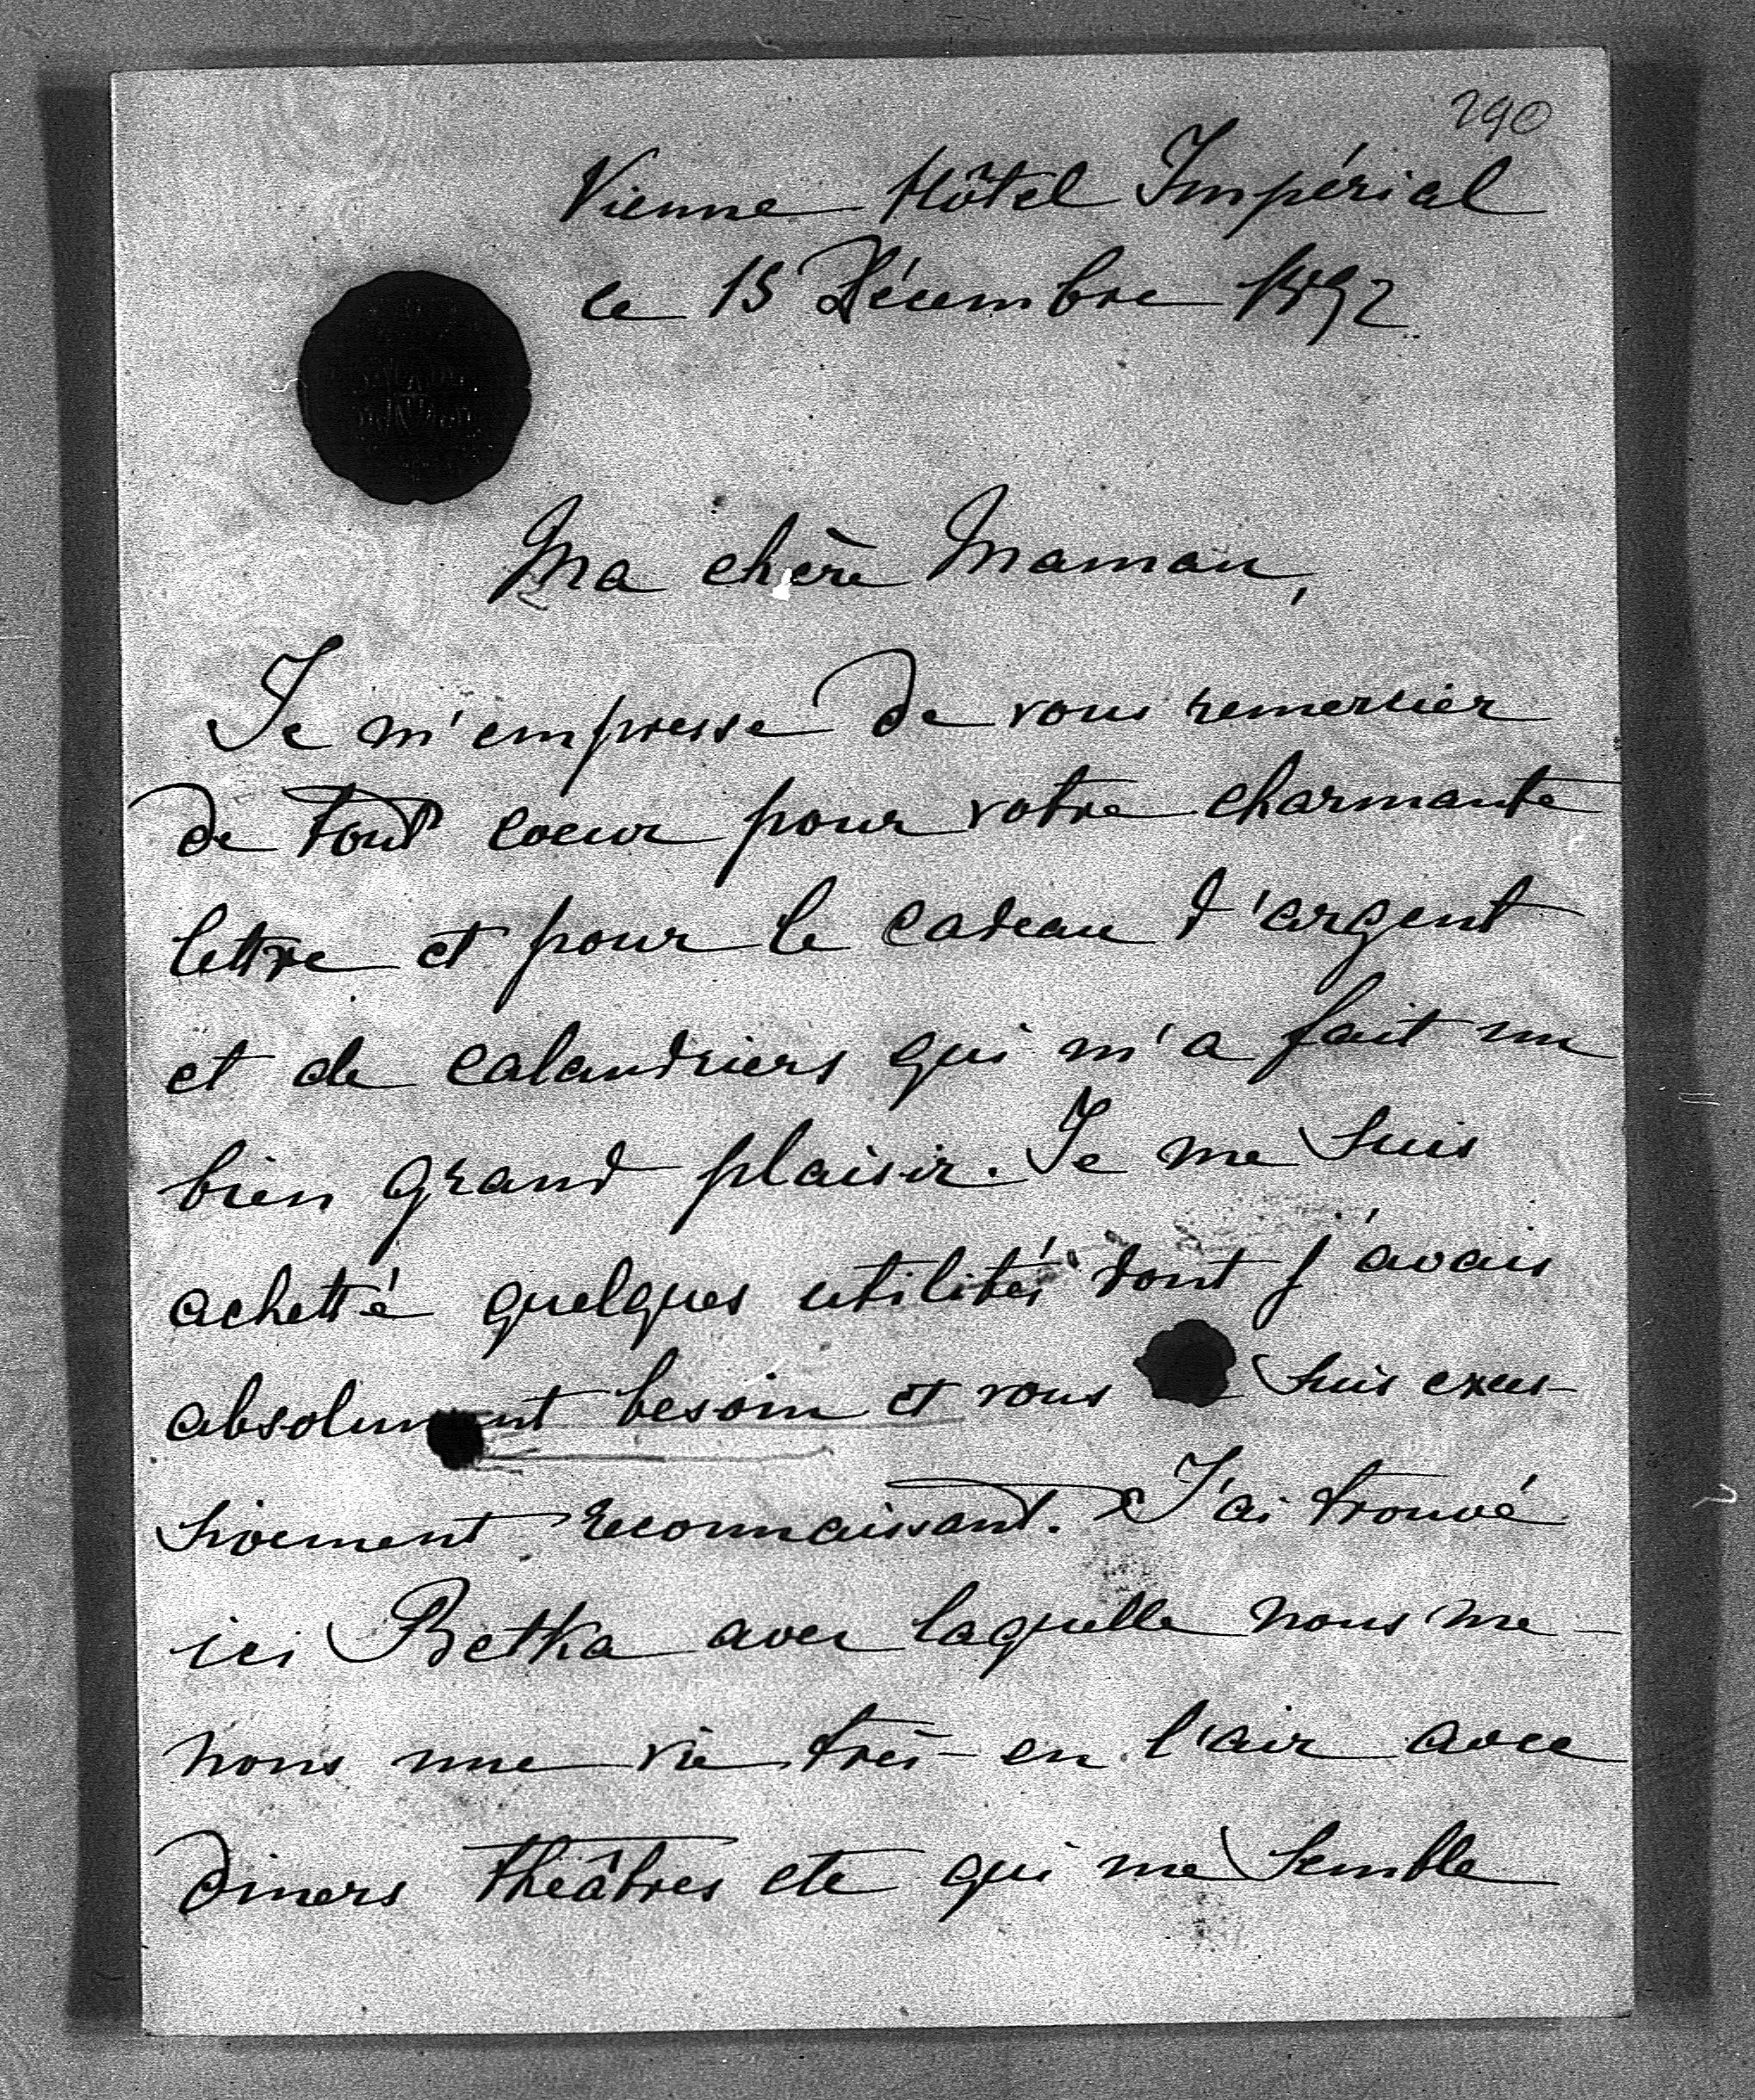 290
Vienne Hôtel Impérial
le 15 Décembre 1892
Ma chère Maman,
Je m'empresse de vous remercier
de tout coeur pour votre charmante
lettre et pour le cadeau d'argent
et de calandriers qui m'a fait un
bien grand plaisir. Je me suis
achetté quelques utilités dont j'avais
absolument besoin et vous suis exces-
sivement reconnaissant. J'ai trouvé
ici Betka avec laquelle nous me-
nons une vie très-en l'air avec
diners théâtres etc qui me semble